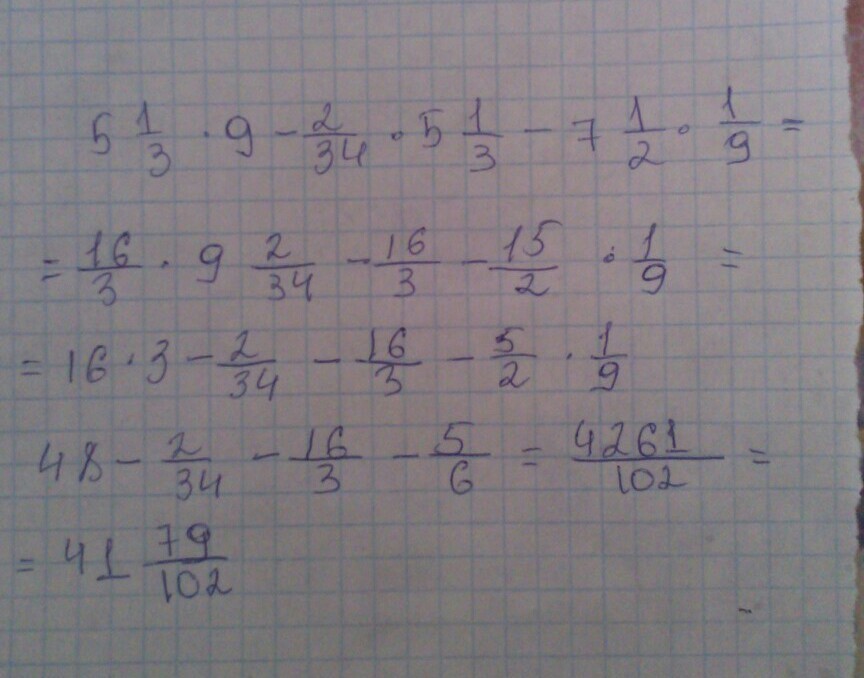 5 1/3 · 9 - 2/34 · 5 1/3 - 7 1/2 · 1/9 =
= 16/3 · 9 2/34 - 16/3 - 15/2 · 1/9 =
= 16 · 3 - 2/34 - 16/3 - 5/2 · 1/9
48 - 2/34 - 16/3 - 5/6 = 4261/102 =
= 41 79/102